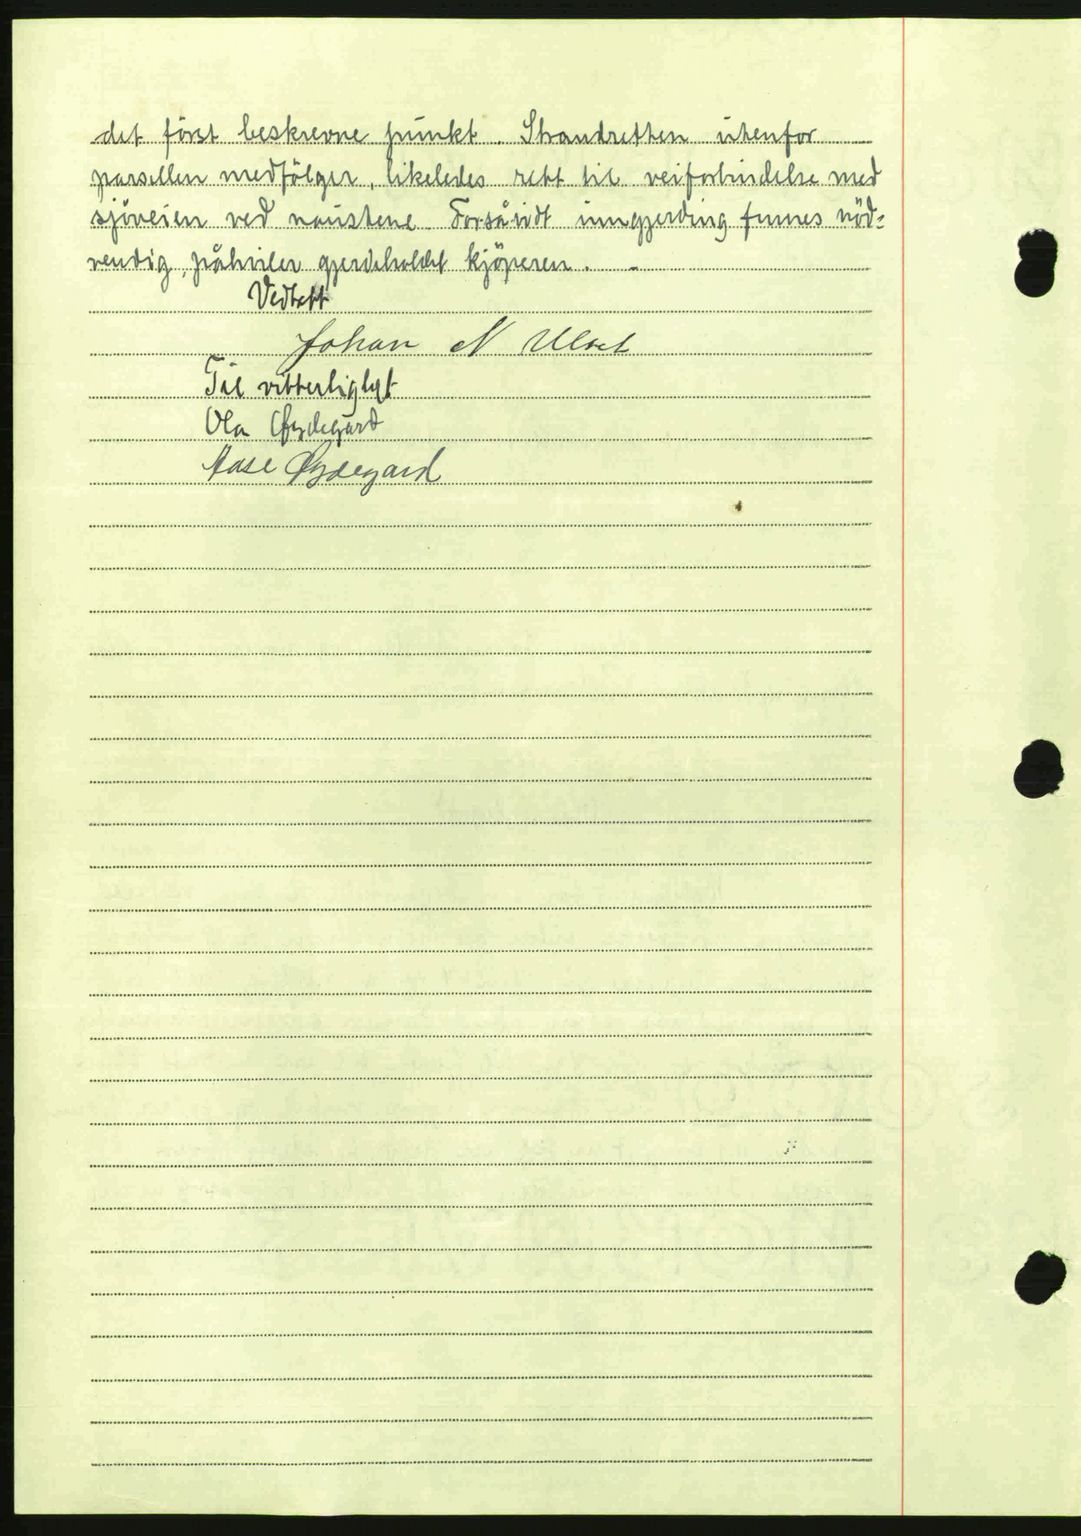 det först beskrevne punkt. Strandretten utenfor
parsellen medfölger, likeledes rett til veiforbindelse med
sjöveien ved naustene. Forsåvidt inngjerding finnes nöd-
vendig, påhviler gjerdeholdet kjöperen.
Vedtatt
Johan N Ulset
Til vitterlighet
Ola Øydegard
Aase Øydegard